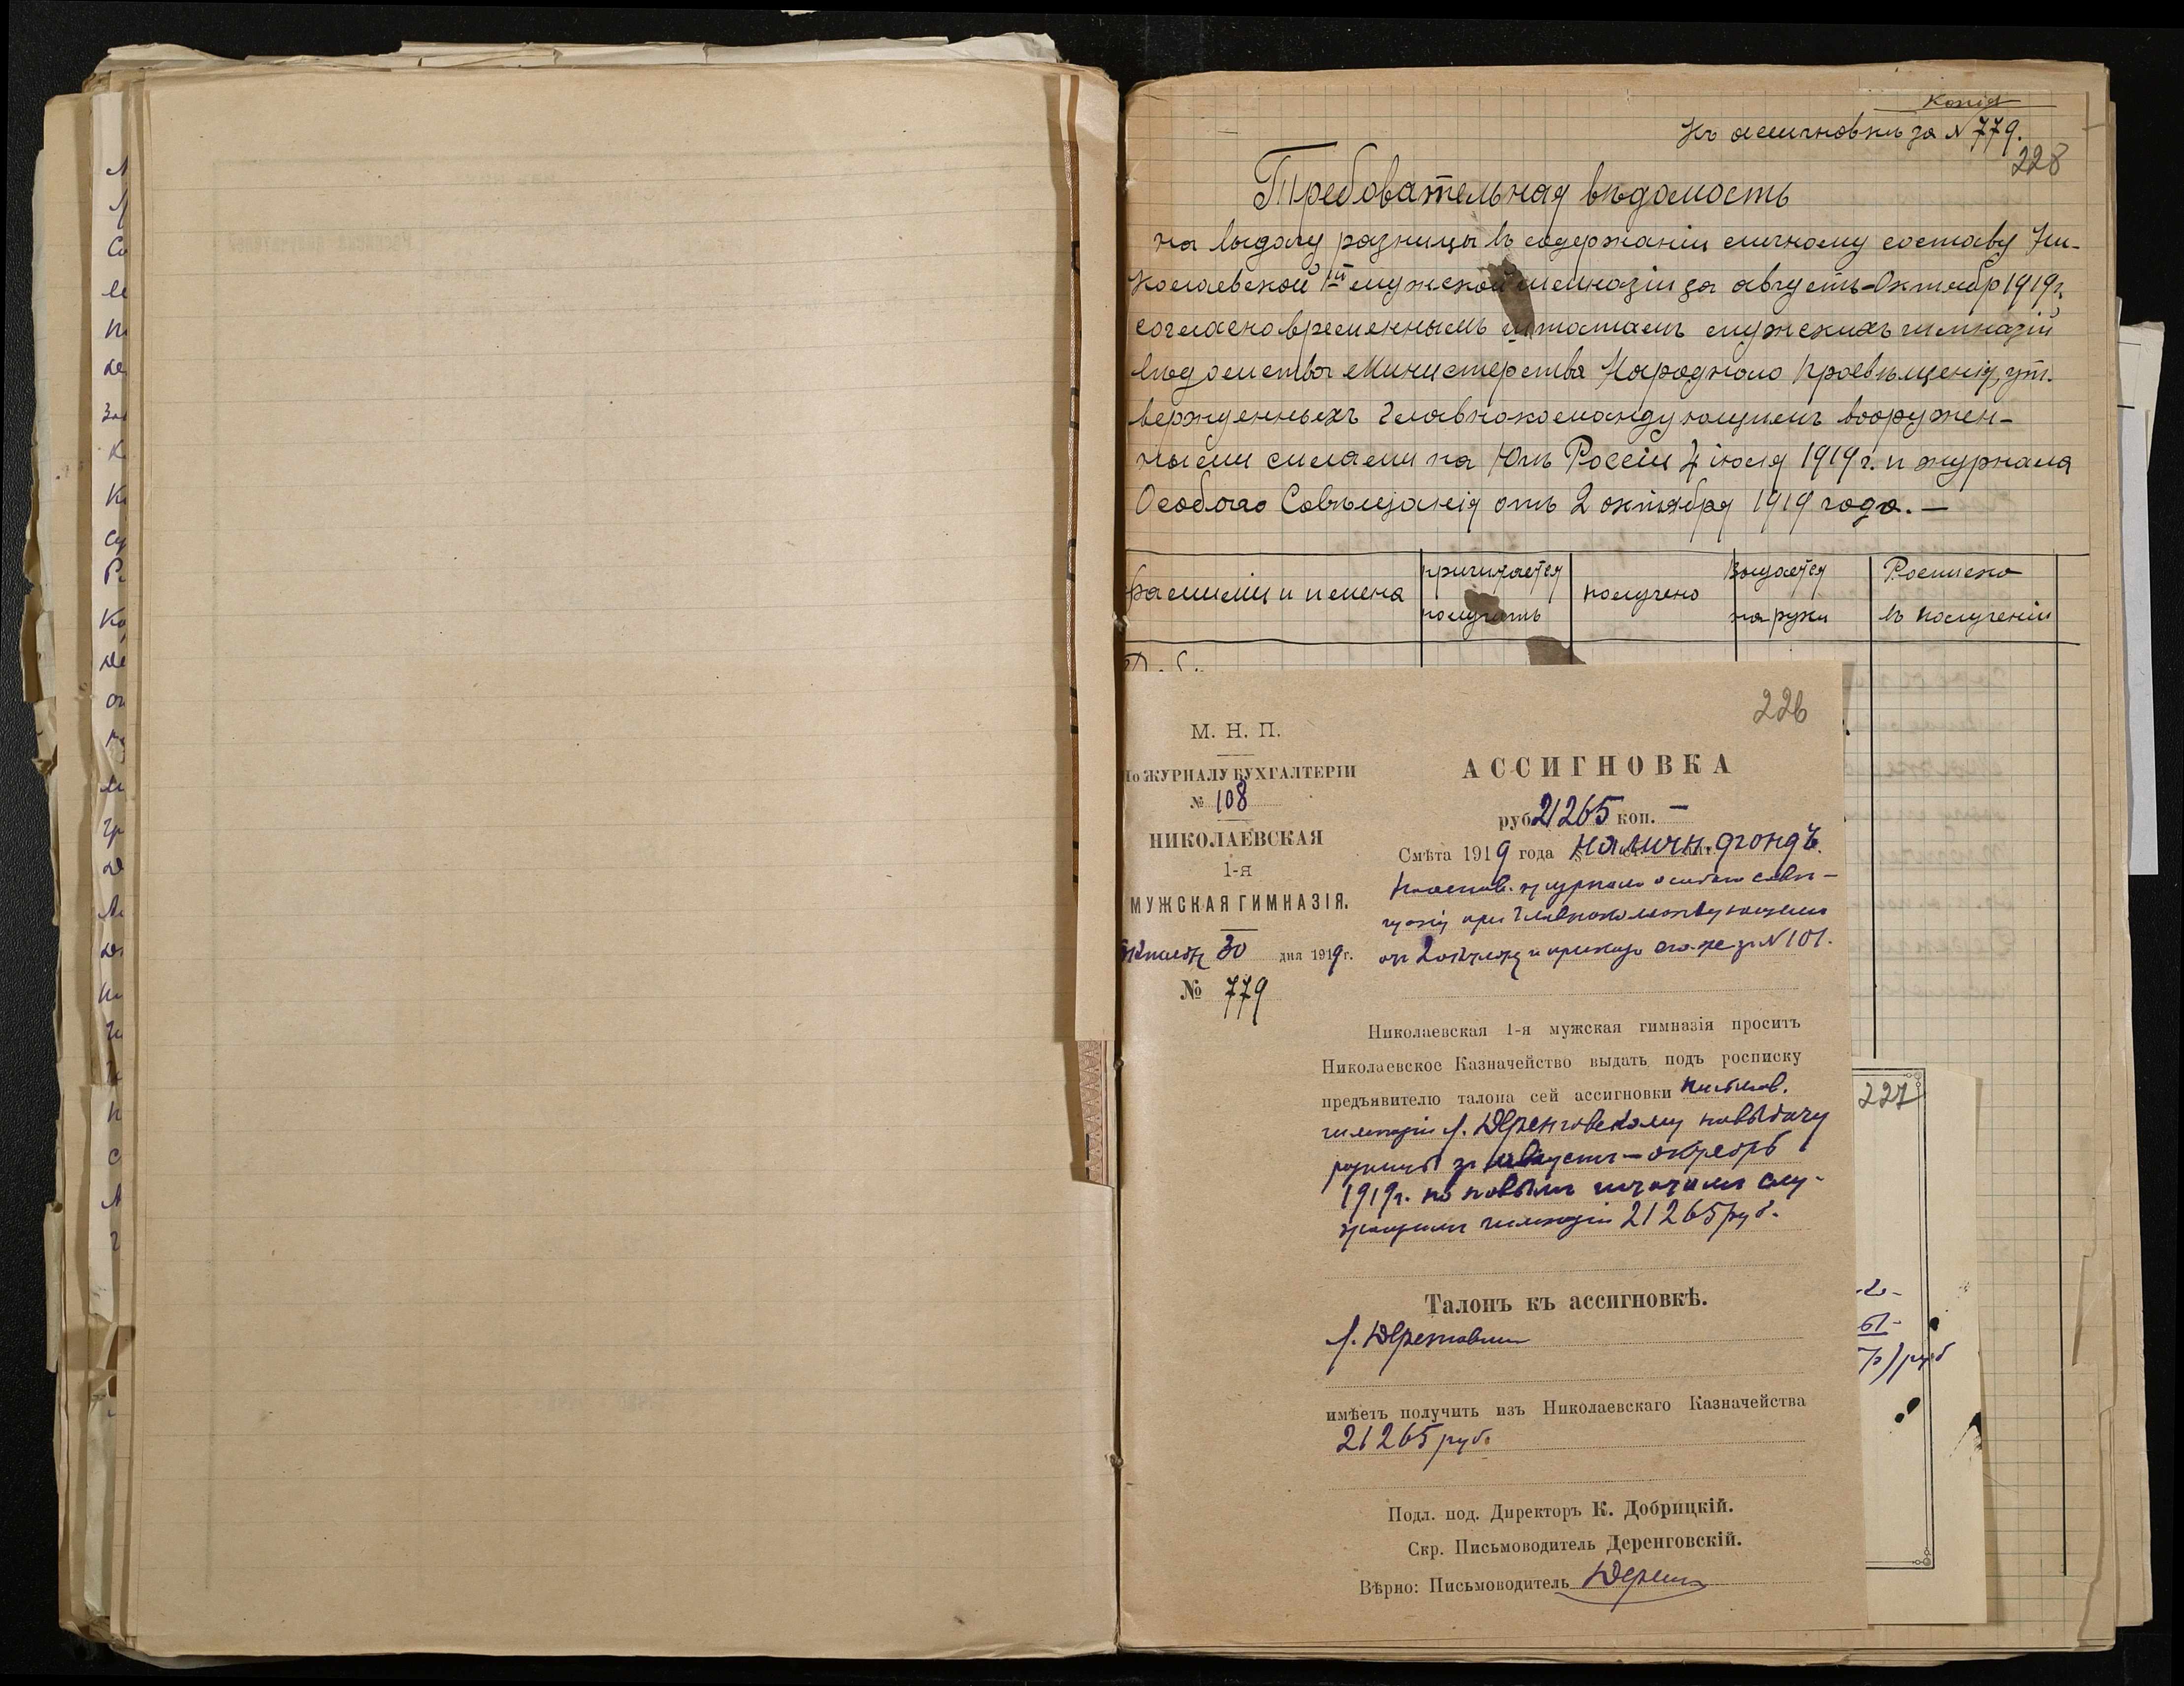 Копія
Къ ассигновкѣ за № 779.
228
Требовательная вѣдомость
на выдачу разницы въ содержаніи личному составу Ни-
колаевской 1й мужской гимназіи за августъ-октябр 1919г.
согласно временнымъ штатамъ мужскихъ гимназій
вѣдомства Министерства Народнаго Просвѣщенія, ут-
вержденныхъ Главнокомандующимъ вооружен-
ными силами на Югѣ Россіи 4 іюля 1919 г. и журнала
Особаго Совѣщанія отъ 2 октября 1919 года. —
Фамиліи и имена
причитается получить
получено
Выдается на руки
Росписка въ полученіи
226
М. Н. П.
По ЖУРНАЛУ БУХГАЛТЕРІИ
№ 108
НИКОЛАЕВСКАЯ
1-я
МУЖСКАЯ ГИМНАЗІЯ.
30 дня 1919 г.
№ 779
АССИГНОВКА
руб. 21265 коп. —
Смѣта 1919 года наличн. фондъ.
журнала особаго совѣ-
щанія при Главнокомандующемъ
от 2 октября и приказа его же за № 101.
Николаевская 1-я мужская гимназія проситъ
Николаевское Казначейство выдать подъ росписку
предъявителю талона сей ассигновки письмов.
гимназіи Л. Деренговскому на выдачу
разницы за августъ — октябрь
1919г. по новымъ штатамъ слу-
жащимъ гимназіи 21265 руб.
Талонъ къ ассигновкѣ.
имѣетъ получить изъ Николаевскаго Казначейства
21265 руб.
Подл. под. Директоръ К. Добрицкій.
Скр. Письмоводитель Деренговскій.
Вѣрно: Письмоводитель
227